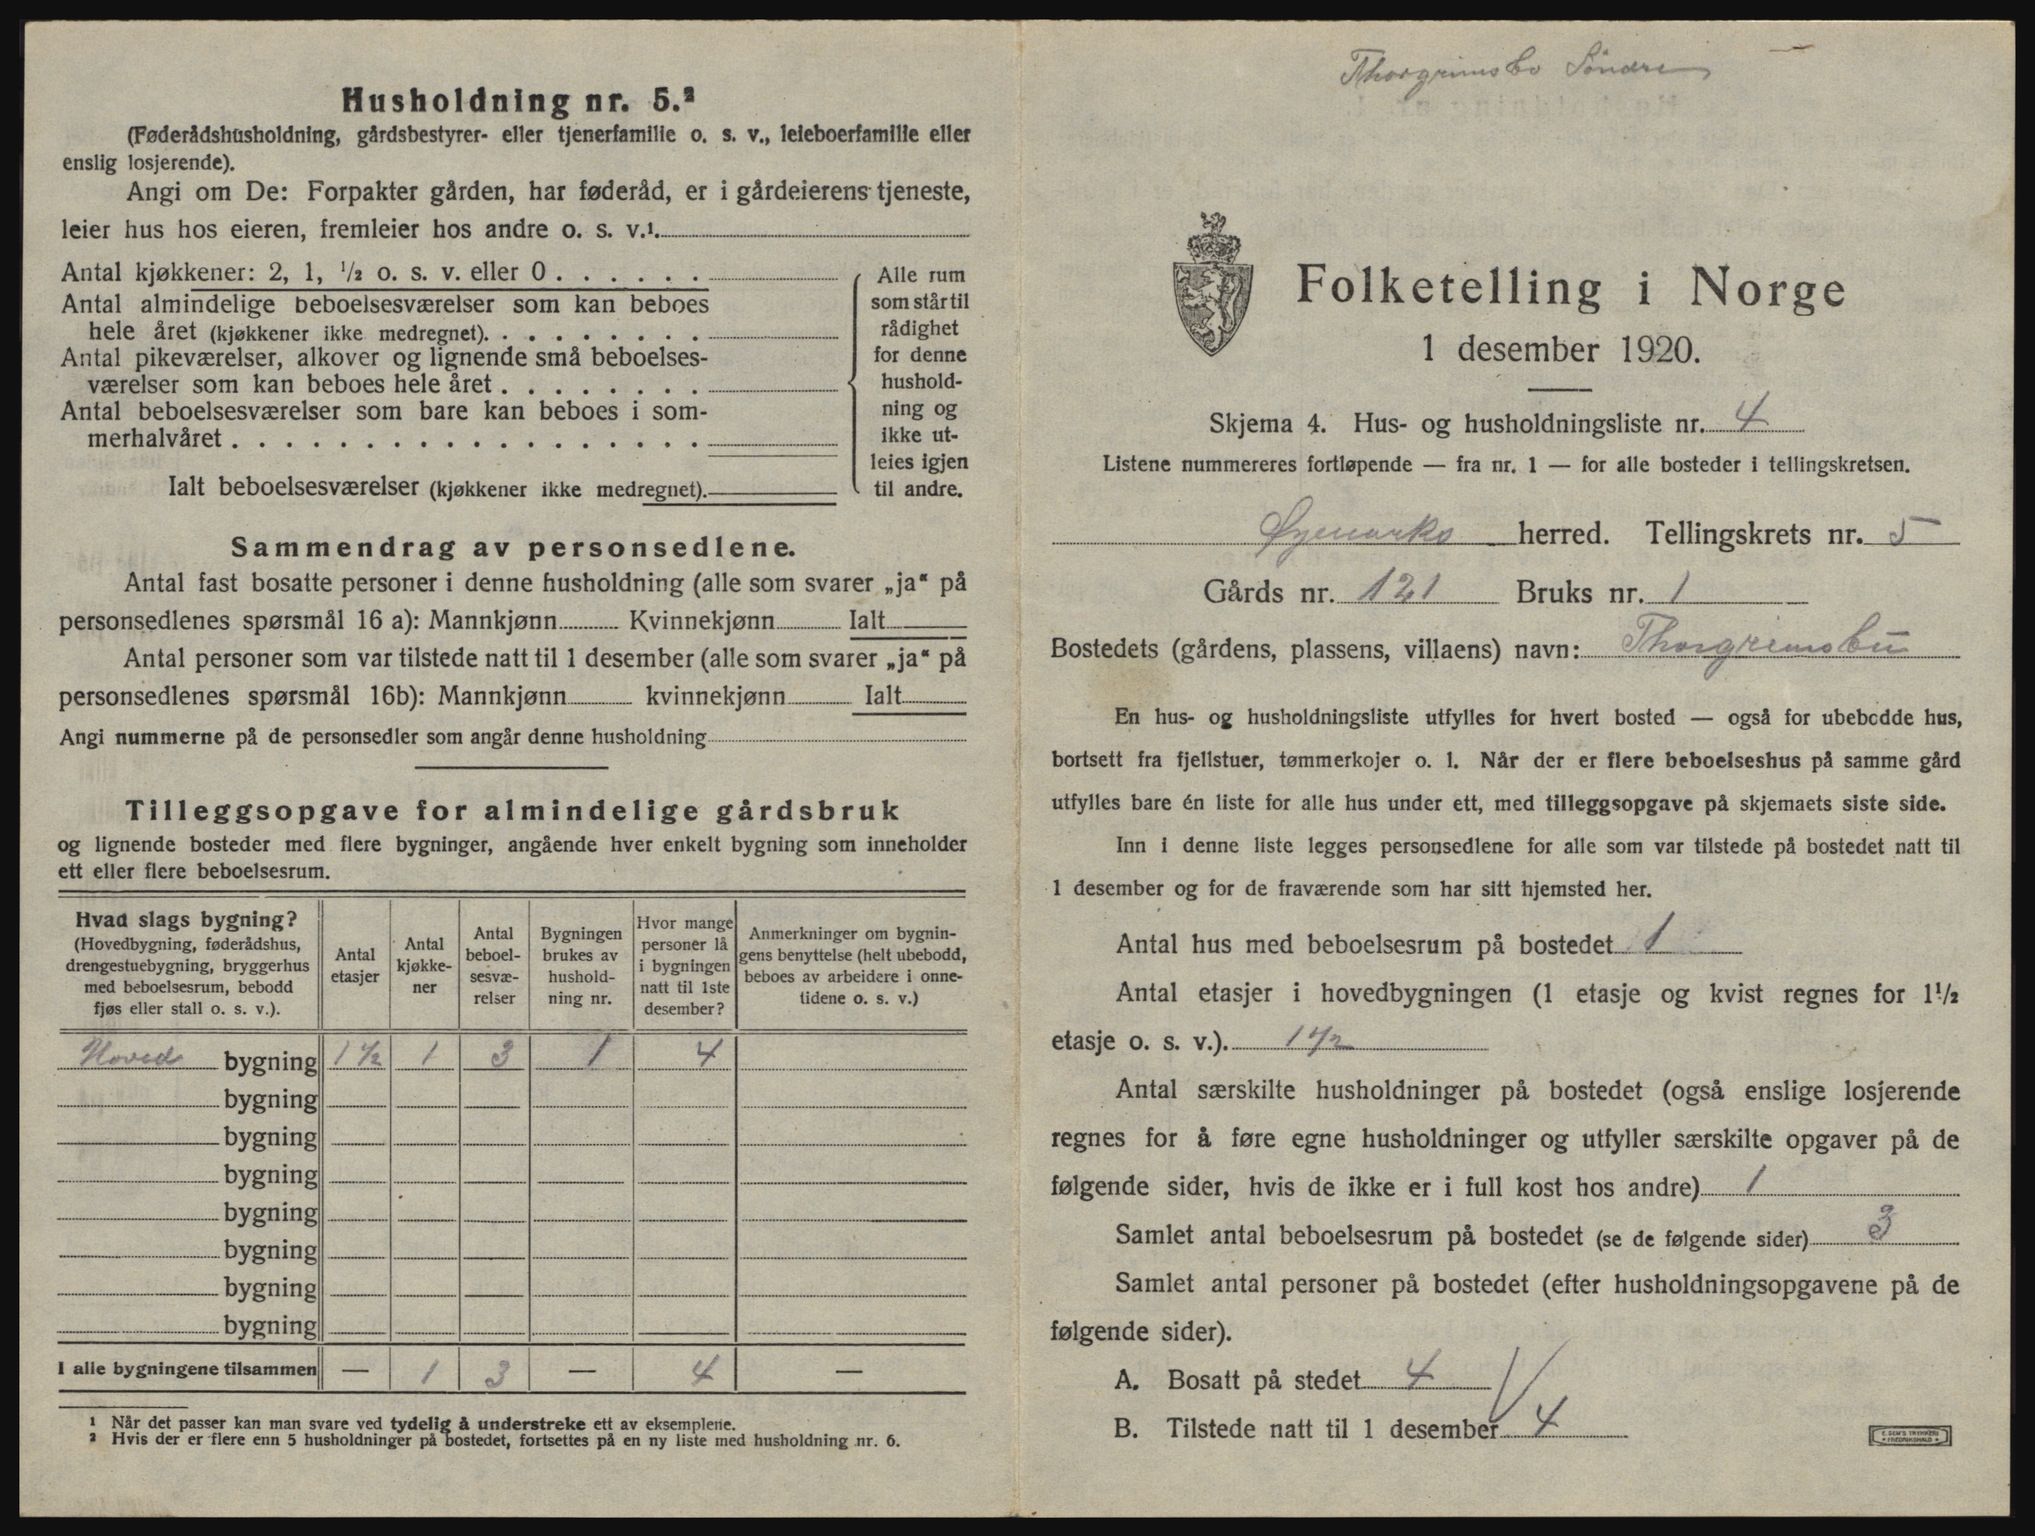 Husholdning nr. 5.²
(Føderådshusholdning, gårdsbestyrer- eller tjenerfamilie o. s. v., leieboerfamilie eller
enslig losjerende).
Angi om De: Forpakter gården, har føderåd, er i gårdeierens tjeneste,
leier hus hos eieren, fremleier hos andre o. s. v.¹
Antal kjøkkener: 2, 1, ½ o. s. v. eller 0 . . . . . .
Antal almindelige beboelsesværelser som kan beboes
hele året (kjøkkener ikke medregnet). . . . . . . . .
Antal pikeværelser, alkover og lignende små beboelses-
værelser som kan beboes hele året . . . . . . . .
Antal beboelsesværelser som bare kan beboes i som-
merhalvåret . . . . . . . . . . . . . . . . . .
Ialt beboelsesværelser (kjøkkener ikke medregnet).
Alle rum
som står til
rådighet
for denne
hushold-
ning og
ikke ut-
leies igjen
til andre.
Sammendrag av personsedlene.
Antal fast bosatte personer i denne husholdning (alle som svarer „ja“ på
personsedlenes spørsmål 16 a): Mannkjønn Kvinnekjønn Ialt
Antal personer som var tilstede natt til 1 desember (alle som svarer „ja“ på
personsedlenes spørsmål 16b): Mannkjønn kvinnekjønn Ialt
Angi nummerne på de personsedler som angår denne husholdning
Tilleggsopgave for almindelige gårdsbruk
og lignende bosteder med flere bygninger, angående hver enkelt bygning som inneholder
ett eller flere beboelsesrum.
Hvad slags bygning?
(Hovedbygning, føderådshus,
drengestuebygning, bryggerhus
med beboelsesrum, bebodd
fjøs eller stall o. s. v.).
Antal
etasjer
Antal
kjøkke-
ner
Antal
beboel-
sesvæ-
relser
Bygningen
brukes av
hushold-
ning nr.
Hvor mange
personer lå
i bygningen
natt til 1ste
desember?
Anmerkninger om bygnin-
gens benyttelse (helt ubebodd,
beboes av arbeidere i onne-
tidene o. s. v.)
Hoved bygning 1 ½ 1 3 1 4
bygning
bygning
bygning
bygning
bygning
bygning
bygning
I alle bygningene tilsammen — 1 3 — 4 —
¹ Når det passer kan man svare ved tydelig å understreke ett av eksemplene.
² Hvis der er flere enn 5 husholdninger på bostedet, fortsettes på en ny liste med husholdning nr. 6.
Thorgrimsbo Söndre
Folketelling i Norge
1 desember 1920.
Skjema 4. Hus- og husholdningsliste nr. 4
Listene nummereres fortløpende — fra nr. 1 — for alle bosteder i tellingskretsen.
Øymarks herred. Tellingskrets nr. 5
Gårds nr. 121 Bruks nr. 1
Bostedets (gårdens, plassens, villaens) navn: Thorgrimsbu
En hus- og husholdningsliste utfylles for hvert bosted — også for ubebodde hus,
bortsett fra fjellstuer, tømmerkojer o. l. Når der er flere beboelseshus på samme gård
utfylles bare én liste for alle hus under ett, med tilleggsopgave på skjemaets siste side.
Inn i denne liste legges personsedlene for alle som var tilstede på bostedet natt til
1 desember og for de fraværende som har sitt hjemsted her.
Antal hus med beboelsesrum på bostedet 1
Antal etasjer i hovedbygningen (1 etasje og kvist regnes for 1½
etasje o. s. v.). 1 ½
Antal særskilte husholdninger på bostedet (også enslige losjerende
regnes for å føre egne husholdninger og utfyller særskilte opgaver på de
følgende sider, hvis de ikke er i full kost hos andre) 1
Samlet antal beboelsesrum på bostedet (se de følgende sider) 3
Samlet antal personer på bostedet (efter husholdningsopgavene på de
følgende sider).
A. Bosatt på stedet 4
B. Tilstede natt til 1 desember 4
E. SEM'S TRYKKERI
FREDRIKSHALD